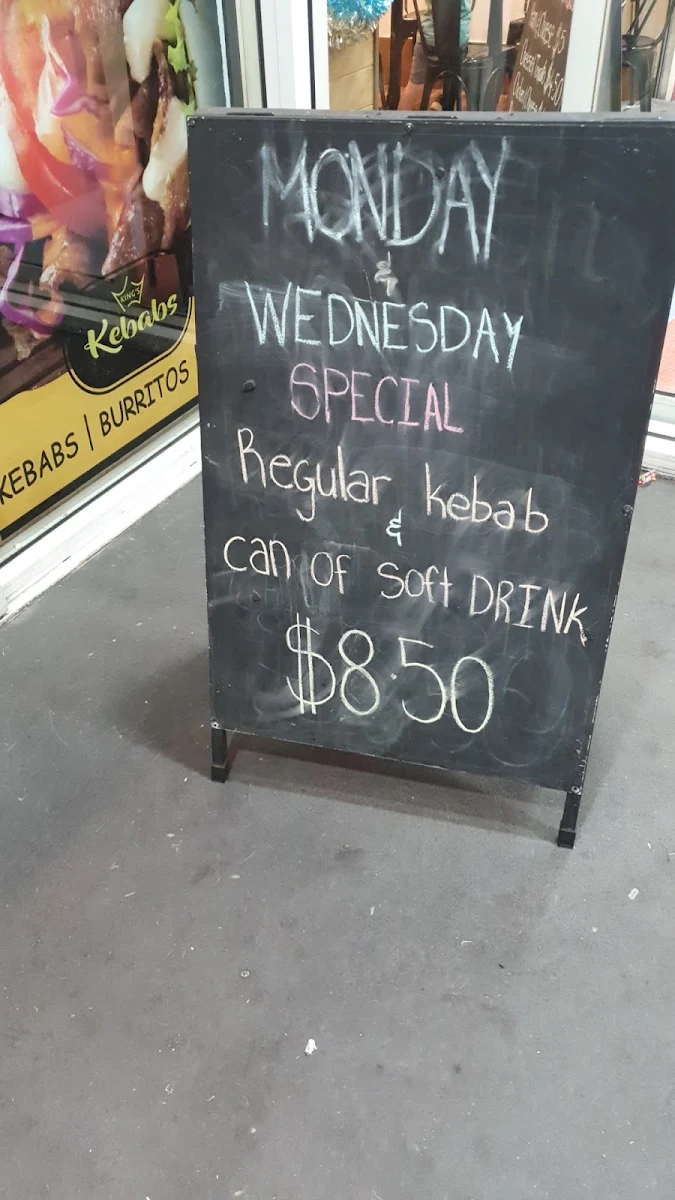 MONDAY
&
WEDNESDAY
SPECIAL
Regular kebab
&
can of soft DRINK
$8.50
KING'S
Kebabs
KEBABS | BURRITOS